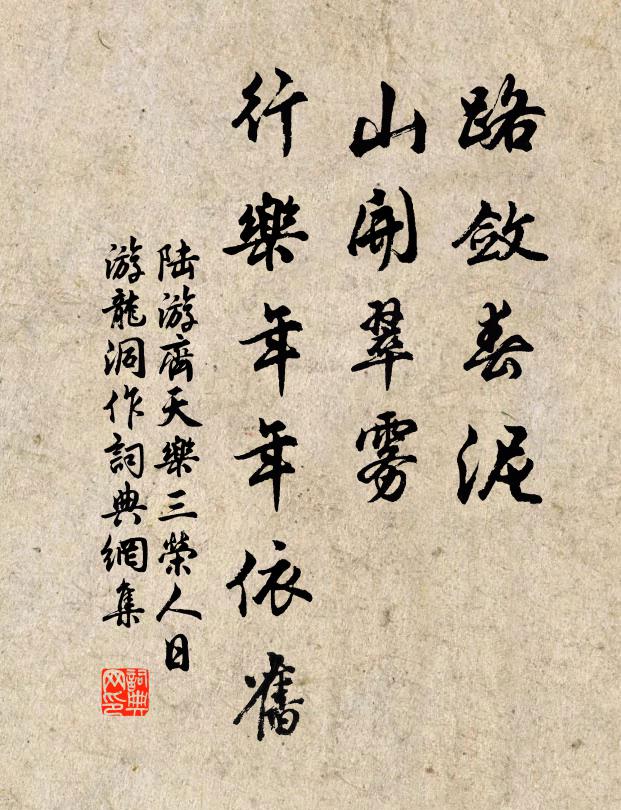 路斂春泥
山開翠雾
行樂年年依舊
陆游齊天樂三榮人日
游龍洞作詞典網集
詞典
网印